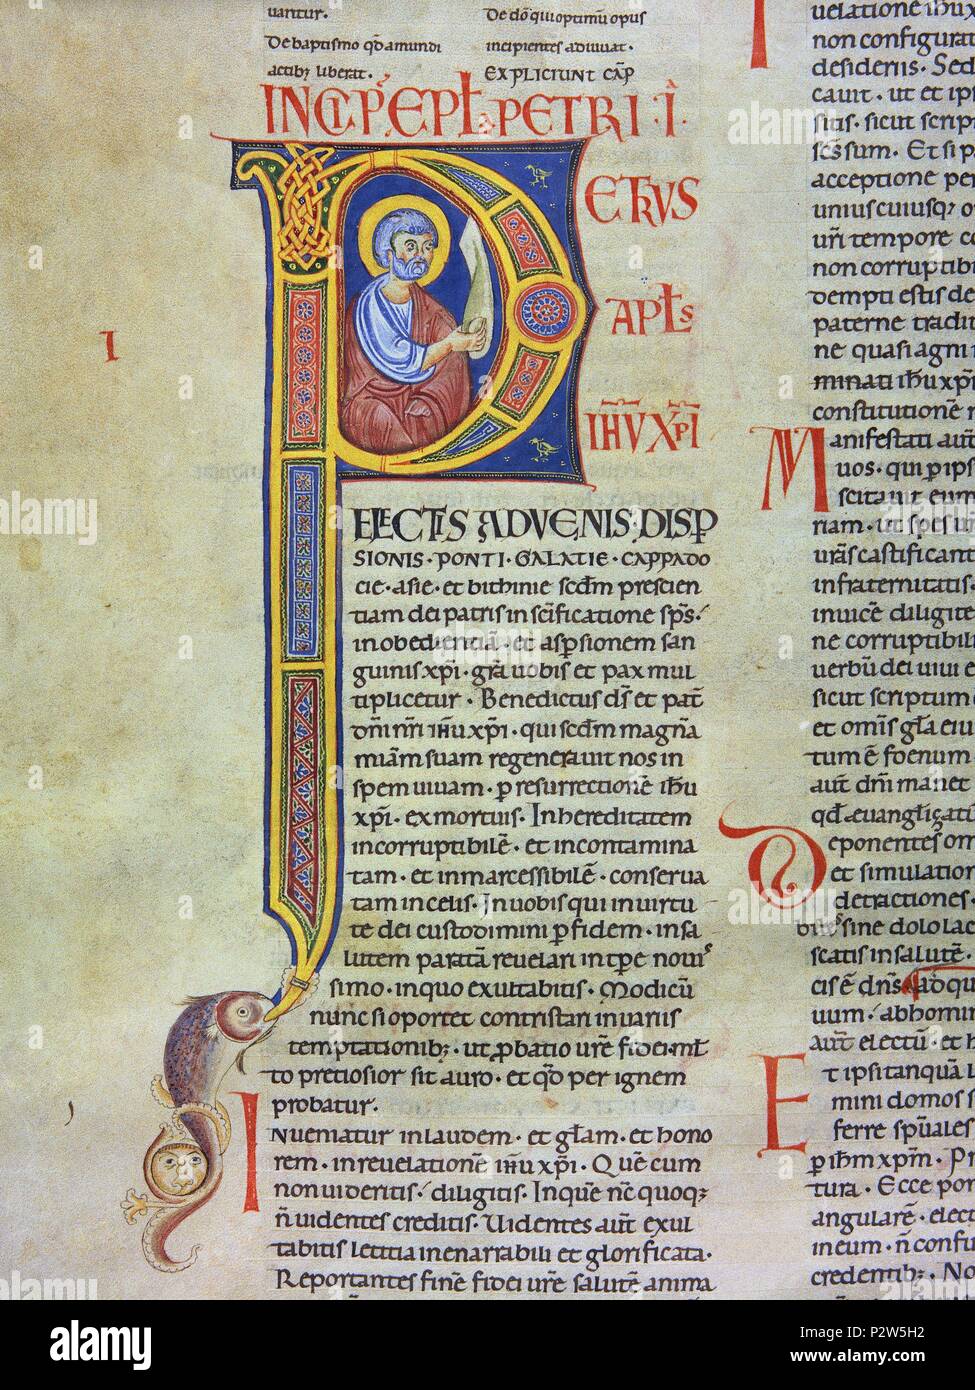 uantur.
De baptismo qd a mundi
actib; liberat.
De dō qui optimū opus
incipientes adiuuat.
EXPLICIUNT CAP̄
INCIP̄ EPL̄ PETRI · I ·
ETRVS
APL̄S
IHV XPI
I
ELECTIS ADVENIS DISP
SIONIS · PONTI · GALATIE · CAPPADO
cie · asie · et bithinie scdm prescien
tiam dei patris in scificatione sps̄
in obedientiā · et aspsionem san
guinis xpi · gra uobis et pax mul
tiplicetur · Benedictus ds et pat̄
dn̄i nr̄i ihu xpi · qui scdm magnā
miam suam regenerauit nos in
spem uiuam · p resurrectionē ihu
xpi · ex mortuis · In hereditatem
incorruptibilē · et incontamina
tam · et inmarcessibilē · conserua
tam in celis · In uobis qui in uirtu
te dei custodimini p fidem · in sa
lutem paratā reuelari in tpe noui
simo · in quo exultabitis · Modicū
nunc si oportet contristari in uariis
temptationib; · ut pbatio ur̄e fidei ml̄
to pretiosior sit auro · et qd per ignem
probatur ·
Inueniatur in laudem · et glam · et hono
rem · in reuelationē ihu xpi · Quē cum
non uideritis · diligitis · In quē nc quoq;
n̄ uidentes creditis · Uidentes aut̄ exul
tabitis letitia inenarrabili et glorificata ·
Reportantes finē fidei ur̄e salutē anima
uelatione ihu x
non configurat
desideriis · Sed
cauit · ut et ip
sitis · sicut scrip
scs sum · Et si p
acceptione per
uniuscuiusq;
ur̄i tempore co
non corruptib
dempti estis de
paterne tradit
ne quasi agni i
minati ihu xp
constitutionē
Manifestati aut̄
uos · qui p ips
scitauit eum
riam · ut spes u
ur̄as castificant
in fraternitatis ·
inuicē diligite
ne corruptibili
uerbū dei uiui e
sicut scriptum
et omīs gla eiu
tum ē foenum
aut̄ dn̄i manet
qd euangliçati
Deponentes om
et simulation
detractiones ·
bile sine dolo lac
scatis in salutē ·
cis ē dn̄s ad qu
uum · abhomin
aut̄ electū · et h
Et ipsi tanquā l
mini domos s
ferre spuales
p ihm xpm · Pr
tura · Ecce pon
angularē · elect
in eum · n̄ confu
credentib; · No
alamy
Image ID: P2W5H2
www.alamy.com